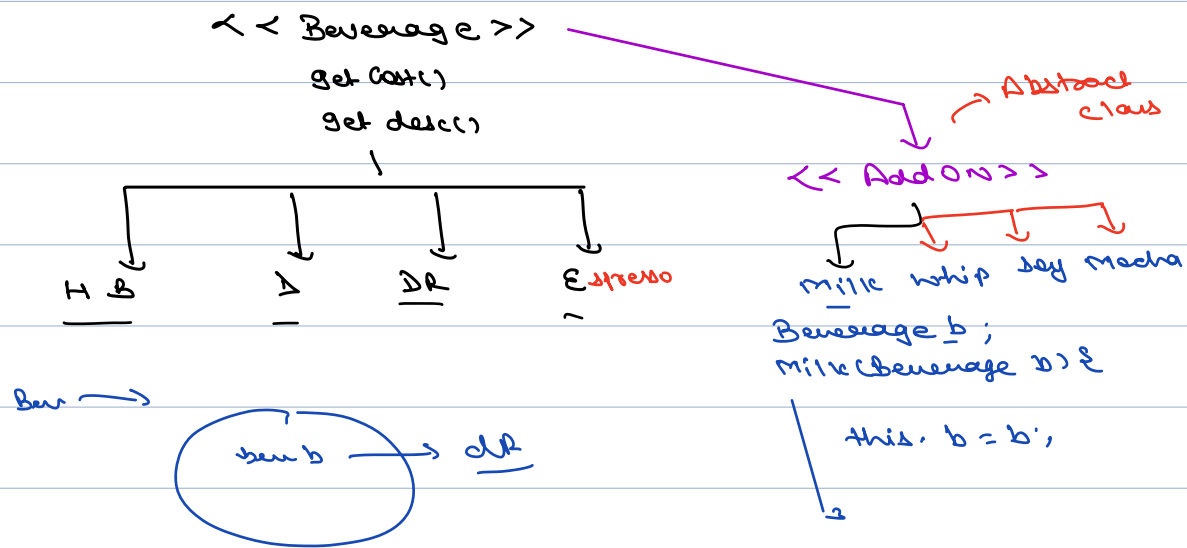 << Beverage >>
get Cost()
get desc()
Abstract
class
<< AddON >>
H B D DR Espresso
Milk whip Soy Mocha
Beverage b;
Milk (Beverage b) {
this. b = b;
}
Bev
bev b dR